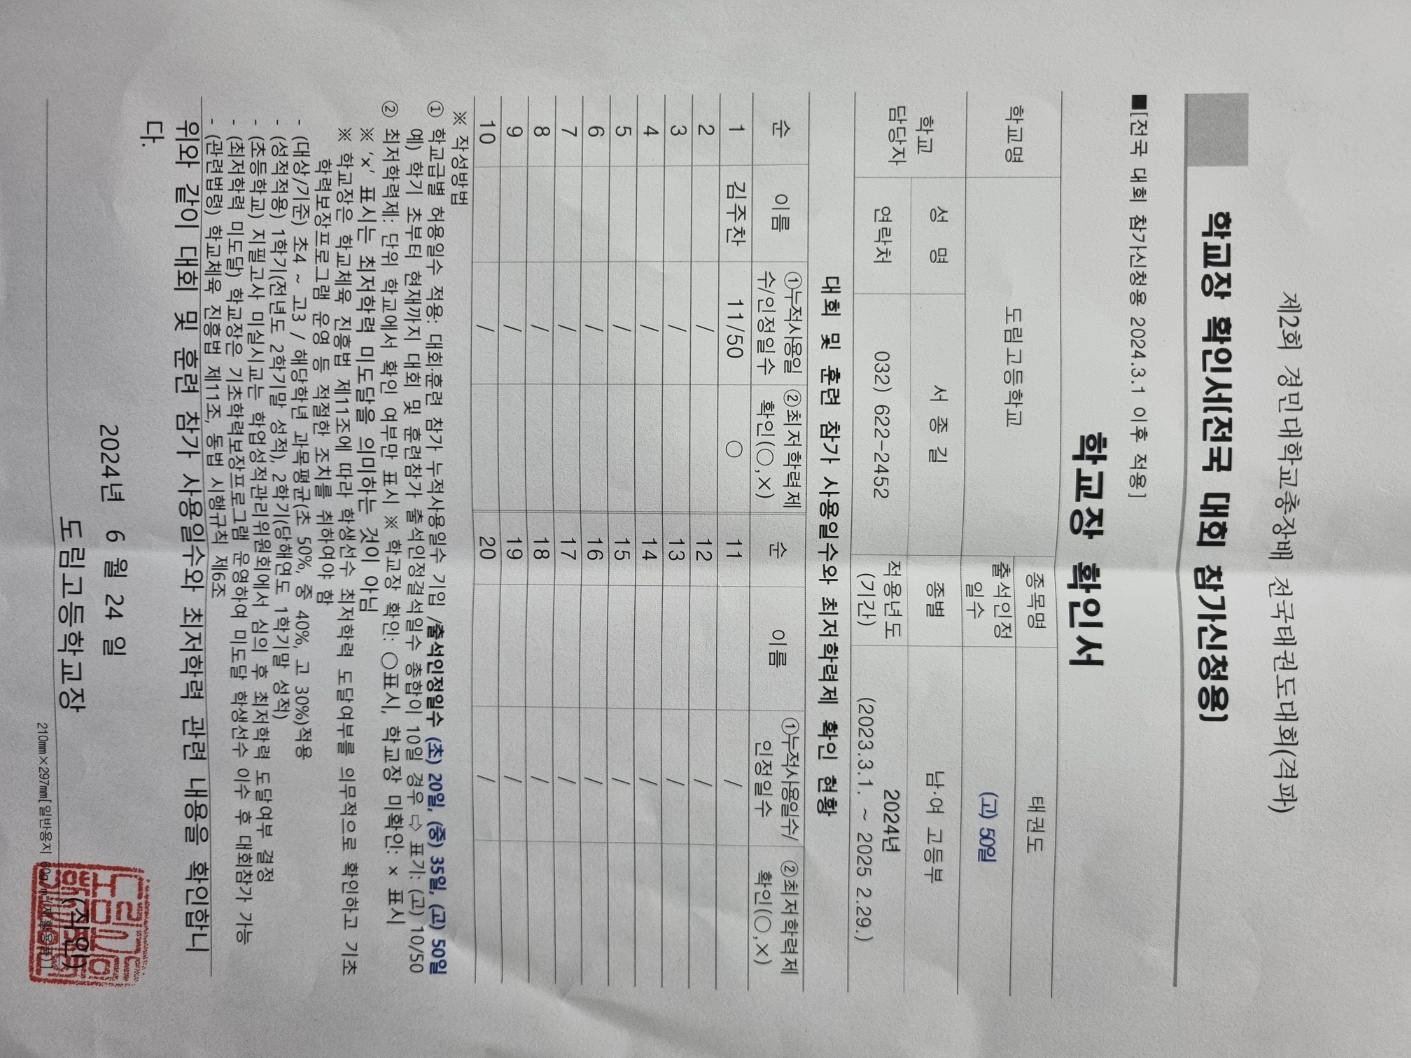 제2회 경민대학교총장배 전국태권도대회(격파)
학교장 확인서[전국 대회 참가신청용]
■[전국 대회 참가신청용 2024.3.1 이후 적용]
학교장 확인서
학교명 도림고등학교 종목명 태권도
출석인정일수 (고) 50일
학교 담당자 성 명 서 종 길 종별 남·여 고등부
연락처 032) 622-2452 적용년도(기간) 2024년 (2023.3.1. ~ 2025 2.29.)
대회 및 훈련 참가 사용일수와 최저학력제 확인 현황
순 이름 ①누적사용일수/인정일수 ②최저학력제 확인(○,×) 순 이름 ①누적사용일수/인정일수 ②최저학력제 확인(○,×)
1 김주찬 11/50 ○ 11 /
2 / 12 /
3 / 13 /
4 / 14 /
5 / 15 /
6 / 16 /
7 / 17 /
8 / 18 /
9 / 19 /
10 / 20 /
※ 작성방법
① 학교급별 허용일수 적용: 대회·훈련 참가 누적사용일수 기입 /출석인정일수 (초) 20일, (중) 35일, (고) 50일
예) 학기 초부터 현재까지 대회 및 훈련참가 출석인정결석일수 총합이 10일 경우 ⇨ 표기: (고) 10/50
② 최저학력제: 단위 학교에서 확인 여부만 표시 ※ 학교장 확인: ○표시, 학교장 미확인: × 표시
※ 'x' 표시는 최저학력 미도달을 의미하는 것이 아님
※ 학교장은 학교체육 진흥법 제11조에 따라 학생선수 최저학력 도달여부를 의무적으로 확인하고 기초
학력보장프로그램 운영 등 적절한 조치를 취하여야 함
- (대상/기준) 초4 ~ 고3 / 해당학년 과목평균(초 50%, 중 40%, 고 30%)적용
- (성적적용) 1학기(전년도 2학기말 성적), 2학기(당해연도 1학기말 성적)
- (초등학교) 지필고사 미실시교는 학업성적관리위원회에서 심의 후 최저학력 도달여부 결정
- (최저학력 미도달) 학교장은 기초학력보장프로그램 운영하여 미도달 학생선수 이수 후 대회참가 가능
- (관련법령) 학교체육 진흥법 제11조, 동법 시행규칙 제6조
위와 같이 대회 및 훈련 참가 사용일수와 최저학력 관련 내용을 확인합니
다.
2024년 6 월 24 일
도림고등학교장 (직인)
210㎜×297㎜[일반용지